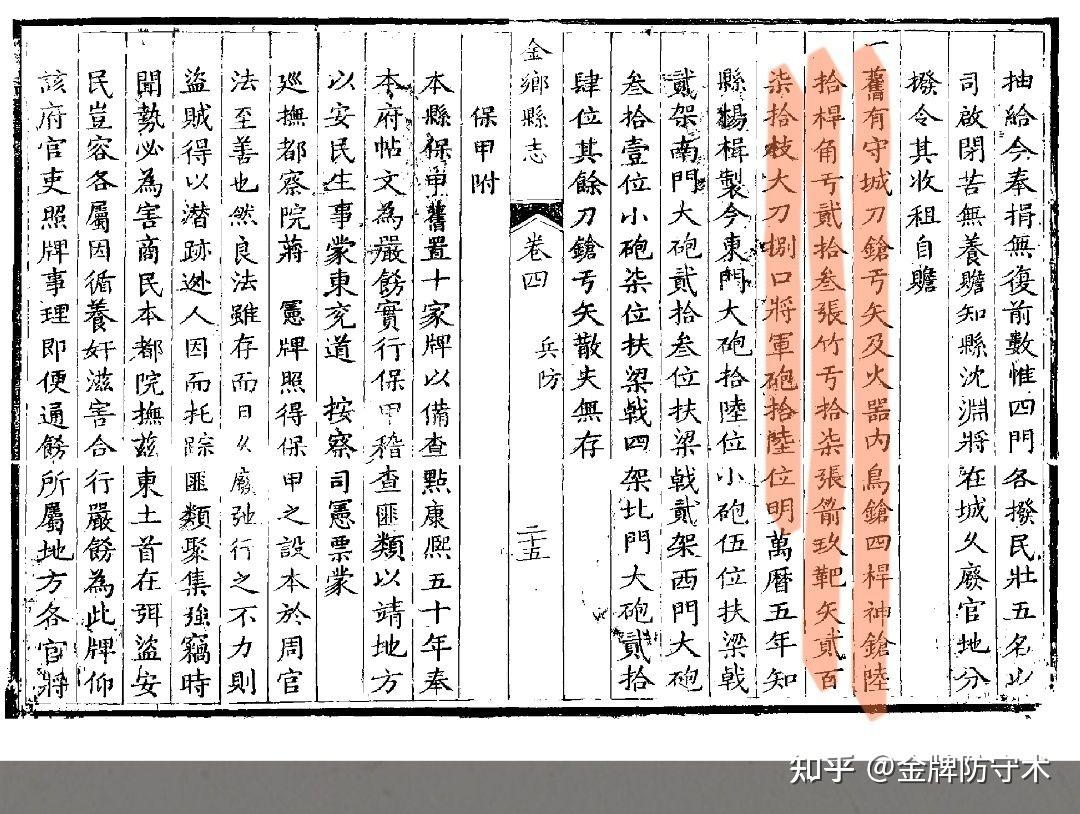 抽給今奉捐無復前數惟四門各撥民壯五名以
司啟閉苦無養贍知縣沈淵將在城久廢官地分
撥令其收租自贍
一舊有守城刀鎗弓矢及火器内鳥鎗四桿神鎗陸
拾桿角弓貳拾叁張竹弓拾柒張箭玖靶矢貳百
柒拾枝大刀捌口將軍砲拾陸位明萬曆五年知
縣楊楫製今東門大砲拾陸位小砲伍位扶梁戟
貳架南門大砲貳拾叁位扶梁戟貳架西門大砲
叁拾壹位小砲柒位扶梁戟四架北門大砲貳拾
肆位其餘刀鎗弓矢散失無存
金鄉縣志
卷四
兵防
二十五
保甲附
本縣保甲舊置十家牌以備查點康熙五十年奉
本府帖文為嚴飭實行保甲稽查匪類以靖地方
以安民生事蒙東兖道 按察司憲票蒙
巡撫都察院蔣 憲牌照得保甲之設本於周官
法至善也然良法雖存而日久廢弛行之不力則
盜賊得以潜跡逊人因而托踪匪類聚集強竊時
聞勢必為害商民本都院撫兹東土首在弭盜安
民豈容各屬因循養奸滋害合行嚴飭為此牌仰
該府官吏照牌事理即便通飭所屬地方各官將
知乎 @金牌防守术